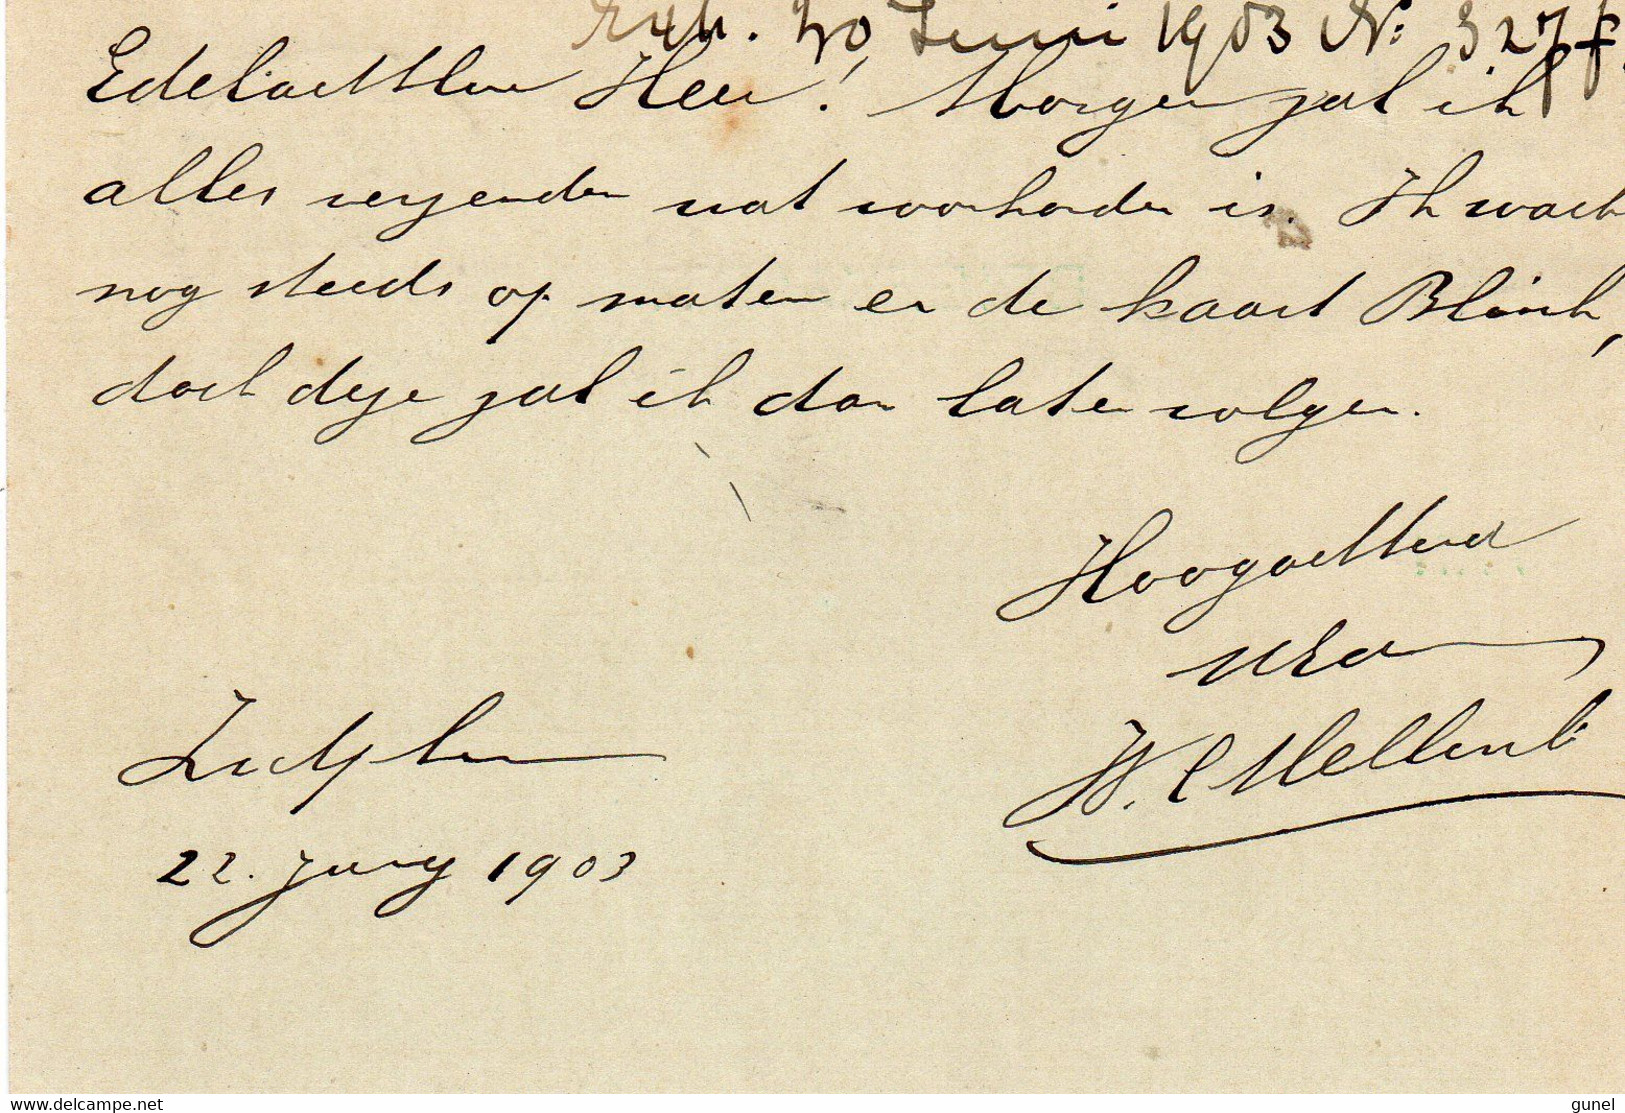 Exh. 30 Juni 1903 No: 327 f
Edelachtbare Heer! Morgen zal ik
alles verzenden wat voorhanden is. Ik wach
nog steeds op maten en de kaart Blink,
doch deze zal ik dan later volgen.
Hoogachtend
UEd
W. C. Mellink
Zutphen
22. Juny 1903
www.delcampe.net
gunel